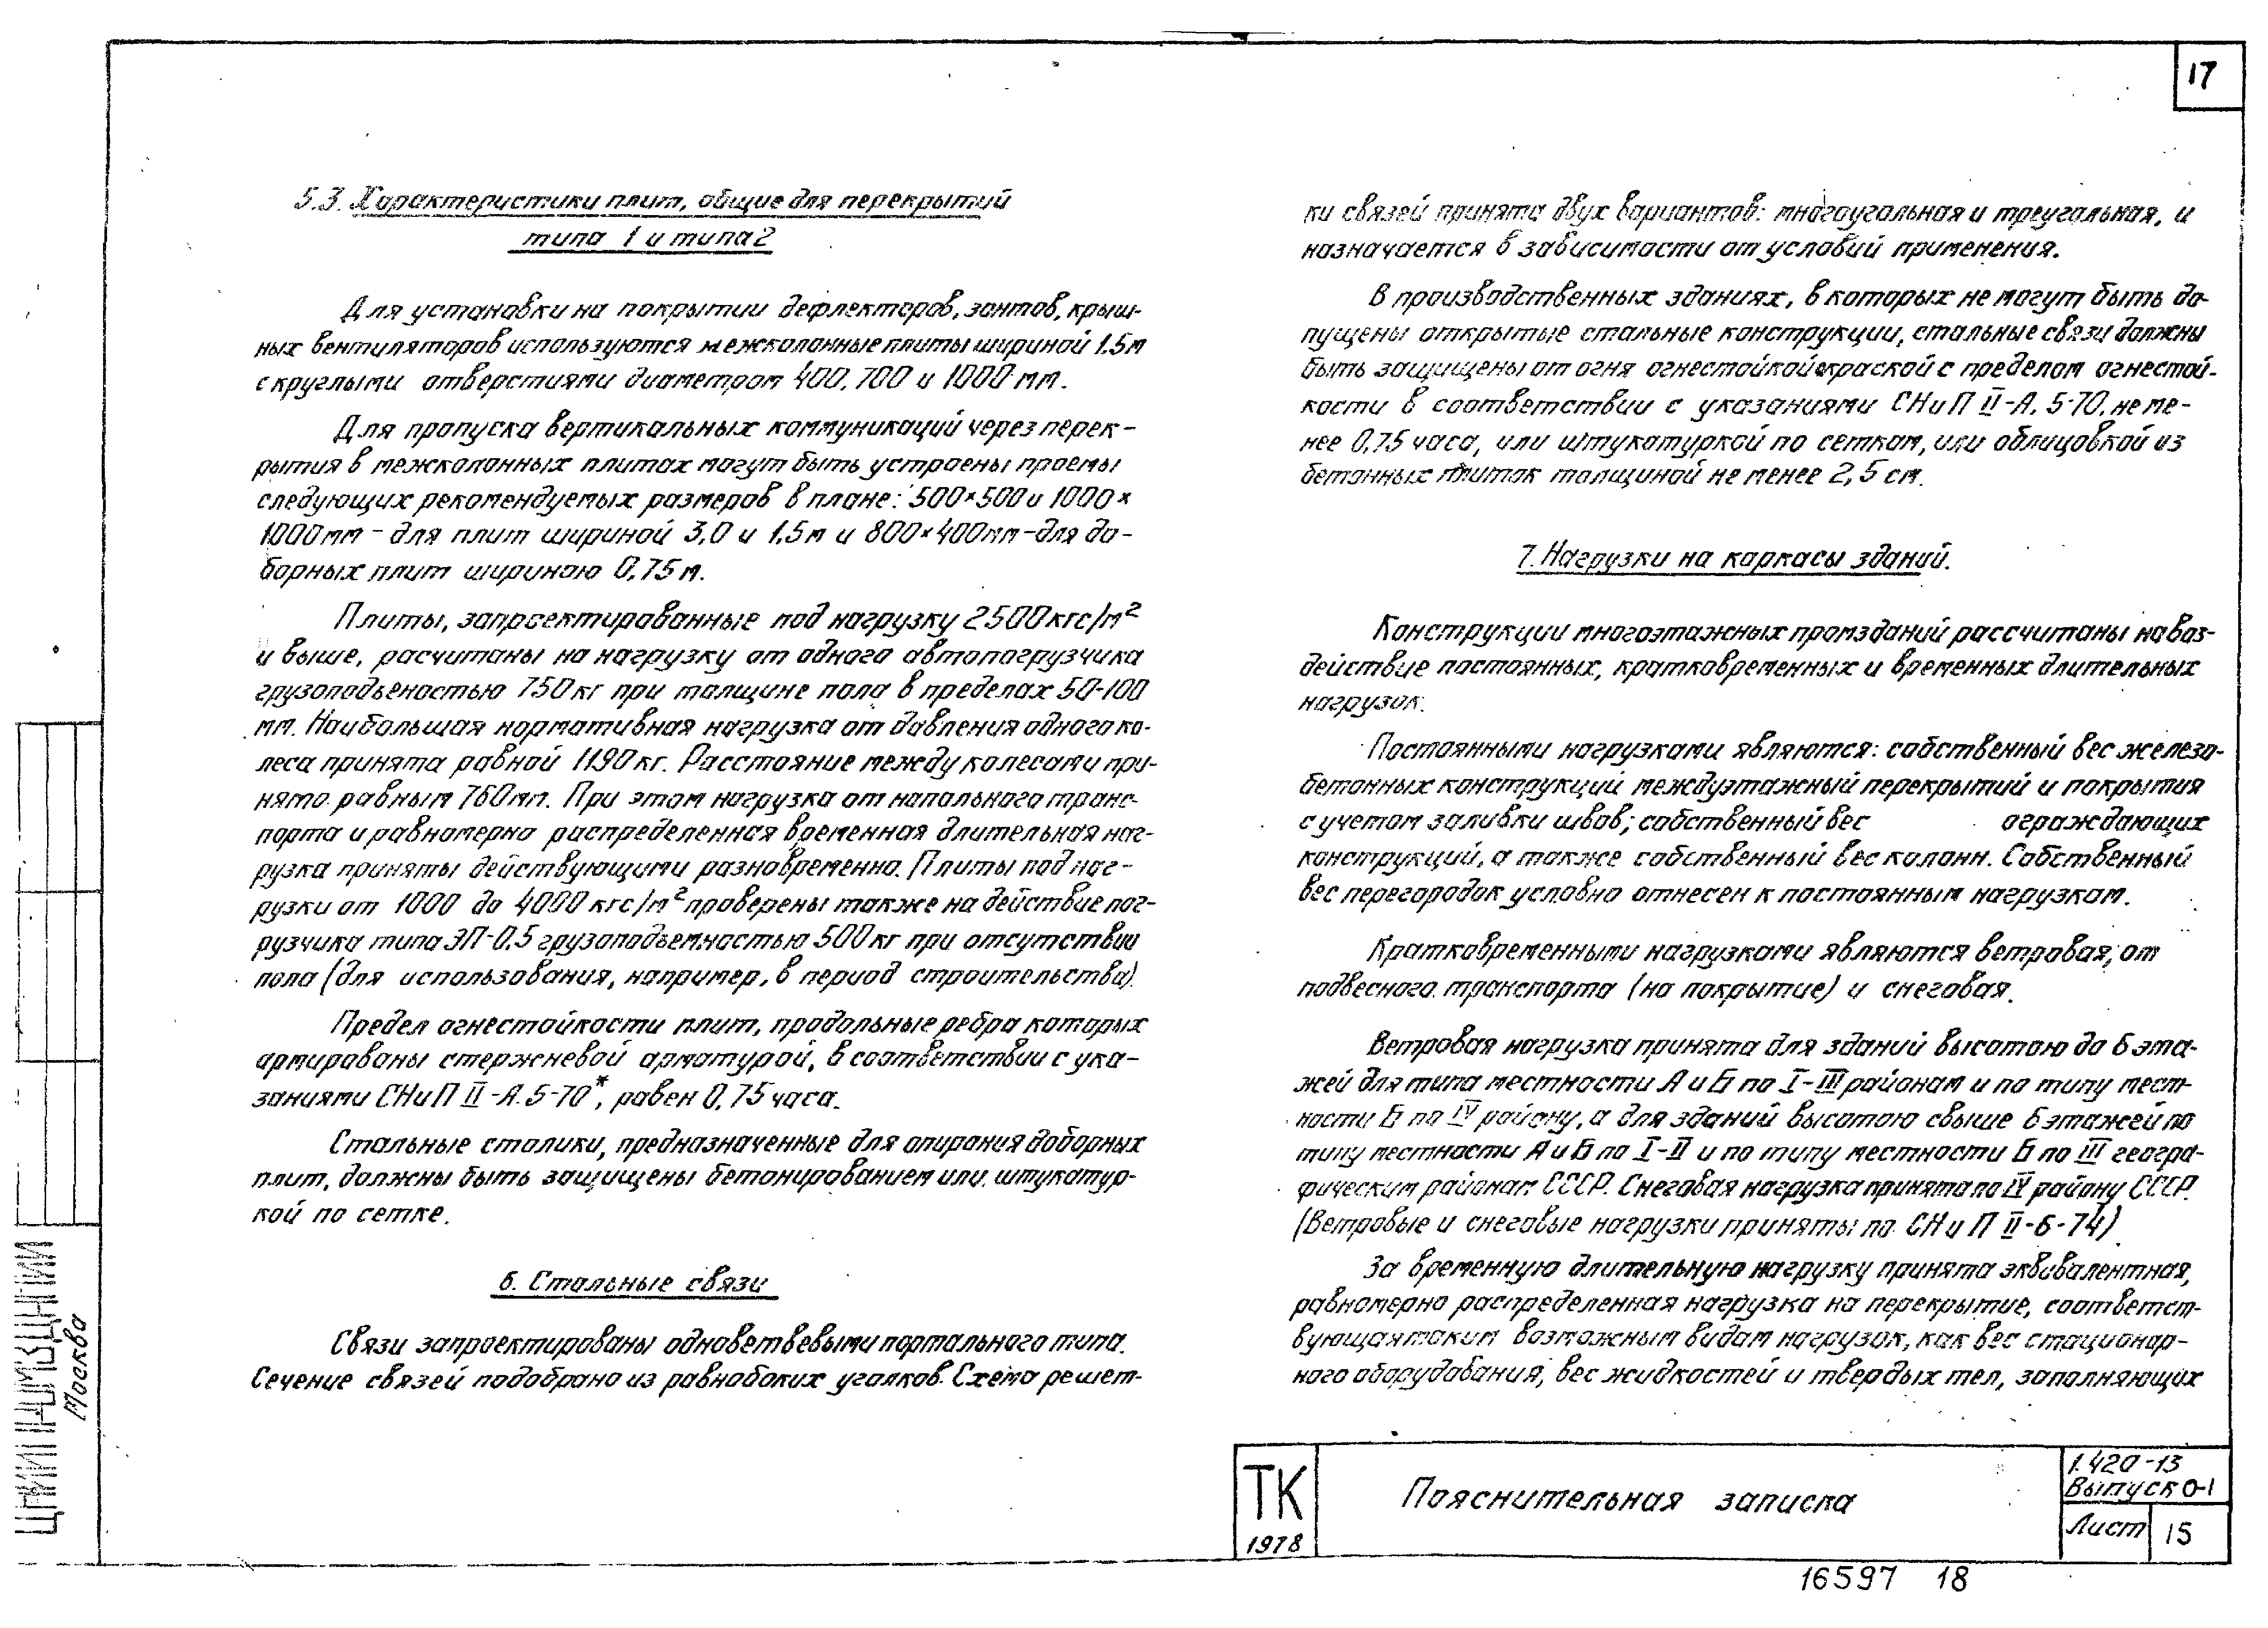 17
5.3. Характеристики плит, общие для перекрытий
типа 1 и типа 2
Для установки на покрытии дефлекторов, зонтов, крыш-
ных вентиляторов используются межколонные плиты шириной 1.5м
с круглыми отверстиями диаметром 400, 700 и 1000 мм.
Для пропуска вертикальных коммуникаций через перек-
рытия в межколонных плитах могут быть устроены проемы
следующих рекомендуемых размеров в плане: 500×500 и 1000×
1000мм - для плит шириной 3,0 и 1,5м и 800×400мм - для до-
борных плит шириною 0,75м.
Плиты, запроектированные под нагрузку 2500кгс/м²
и выше, расчитаны на нагрузку от одного автопогрузчика
грузоподьеностью 750кг при толщине пола в пределах 50-100
мм. Наибольшая нормативная нагрузка от давления одного ко-
леса принята равной 1190кг. Расстояние между колесами при-
нято равным 760мм. При этом нагрузка от напольного транс-
порта и равномерно распределенная временная длительная наг-
рузка приняты действующими разновременно. Плиты под наг-
рузки от 1000 до 4000 кгс/м² проверены также на действие пог-
рузчика типа ЭП-0,5 грузоподъемностью 500кг при отсутствии
пола (для использования, например, в период строительства).
Предел огнестойкости плит, продольные ребра которых
армированы стержневой арматурой, в соответствии с ука-
заниями СНиП II-А.5-70*, равен 0,75 часа.
Стальные столики, предназначенные для опирания доборных
плит, должны быть защищены бетонированием или штукатур-
кой по сетке.
6. Стальные связи
Связи запроектированы одноветвевыми портального типа.
Сечение связей подобрано из равнобоких уголков. Схема решет-
ки связей принята двух вариантов: многоугольная и треугольная, и
назначается в зависимости от условий применения.
В производственных зданиях, в которых не могут быть до-
пущены открытые стальные конструкции, стальные связи должны
быть защищены от огня огнестойкой краской с пределом огнестой-
кости в соответствии с указаниями СНиП II-А.5-70, не ме-
нее 0,75 часа, или штукатуркой по сеткам, или облицовкой из
бетонных плиток толщиной не менее 2,5 см.
7. Нагрузки на каркасы зданий.
Конструкции многоэтажных промзданий рассчитаны на воз-
действие постоянных, кратковременных и временных длительных
нагрузок.
Постоянными нагрузками являются: собственный вес железо-
бетонных конструкций междуэтажный перекрытий и покрытия
с учетом заливки швов; собственный вес ограждающих
конструкций, а также собственный вес колонн. Собственный
вес перегородок условно отнесен к постоянным нагрузкам.
Кратковременными нагрузками являются ветровая, от
подвесного транспорта (на покрытие) и снеговая.
Ветровая нагрузка принята для зданий высотою до 6 эта-
жей для типа местности А и Б по I-III районам и по типу мест-
ности Б по IV району, а для зданий высотою свыше 6 этажей по
типу местности А и Б по I-II и по типу местности Б по III геогра-
фическим районам СССР. Снеговая нагрузка принята по IV району СССР.
(Ветровые и снеговые нагрузки приняты по СНиП II-6-74).
За временную длительную нагрузку принята эквивалентная,
равномерно распределенная нагрузка на перекрытие, соответст-
вующая таким возможным видам нагрузок, как вес стационар-
ного оборудования, вес жидкостей и твердых тел, заполняющих
ЦНИИПРОМЗДАНИЙ
Москва
ТК
1978
Пояснительная записка
1.420-13
Выпуск 0-1
Лист 15
16597 18